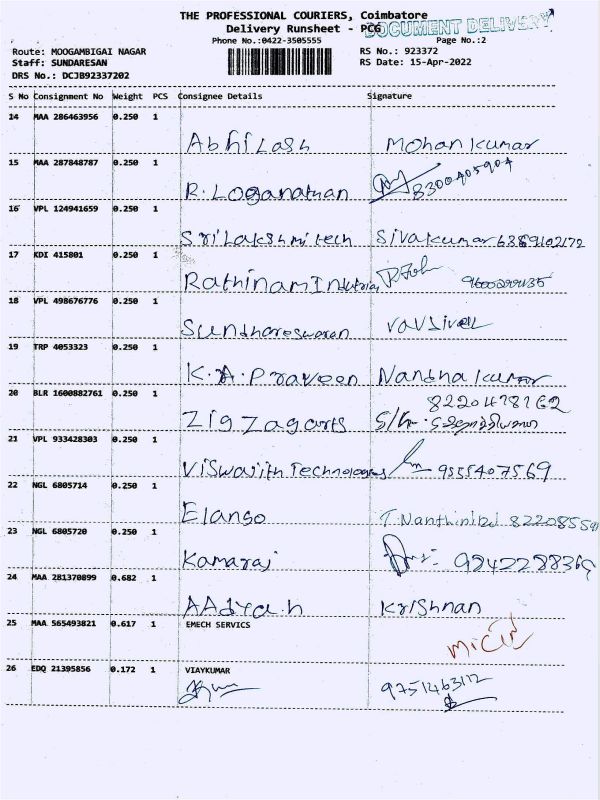 THE PROFESSIONAL COURIERS, Coimbatore
Delivery Runsheet - PCG
DOCUMENT DELIVERY
Phone No.:0422-3505555
Page No.:2
Route: MOOGAMBIGAI NAGAR
RS No.: 923372
Staff: SUNDARESAN
RS Date: 15-Apr-2022
DRS No.: DCJB92337202
S No Consignment No Weight PCS Consignee Details Signature
14 MAA 286463956 0.250 1
Abhilash Mohan Kumar
15 MAA 287848787 0.250 1
R. Loganathan 8300405904
16 VPL 124941659 0.250 1
Sri Lakshmi tech Sivakumar 6389102172
17 KDI 415801 0.250 1
Rathinam Industries
18 VPL 498676776 0.250 1
Sundhareswaran
19 TRP 4053323 0.250 1
K.A. Praveen Nandha Kumar
20 BLR 1600882761 0.250 1
8220478162
Zig Zag arts
21 VPL 933428303 0.250 1
Viswajith Technologies 9555407569
22 NGL 6805714 0.250 1
Elango T. Nanthini
23 NGL 6805720 0.250 1
Kamaraj 9842288369
24 MAA 281370899 0.682 1
AAdya.h Krishnan
25 MAA 565493821 0.617 1 EMECH SERVICS
26 EDQ 21395856 0.172 1 VIAYKUMAR
9751463112